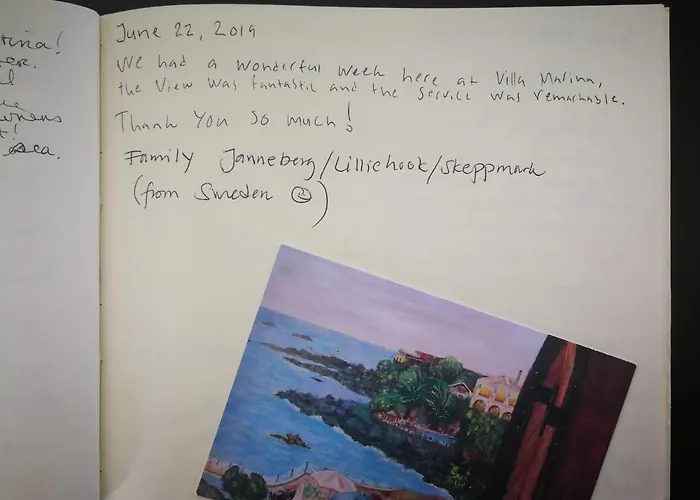 rina!
June 22, 2019
We had a wonderful week here at Villa Marina,
the view was fantastic and the service was remarkable.
Thank you so much!
Family Janneberg/Lilliehook/Skeppmark
(from Sweden ☺)